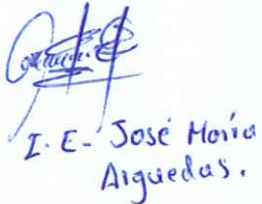 I. E- José María
Arguedas.